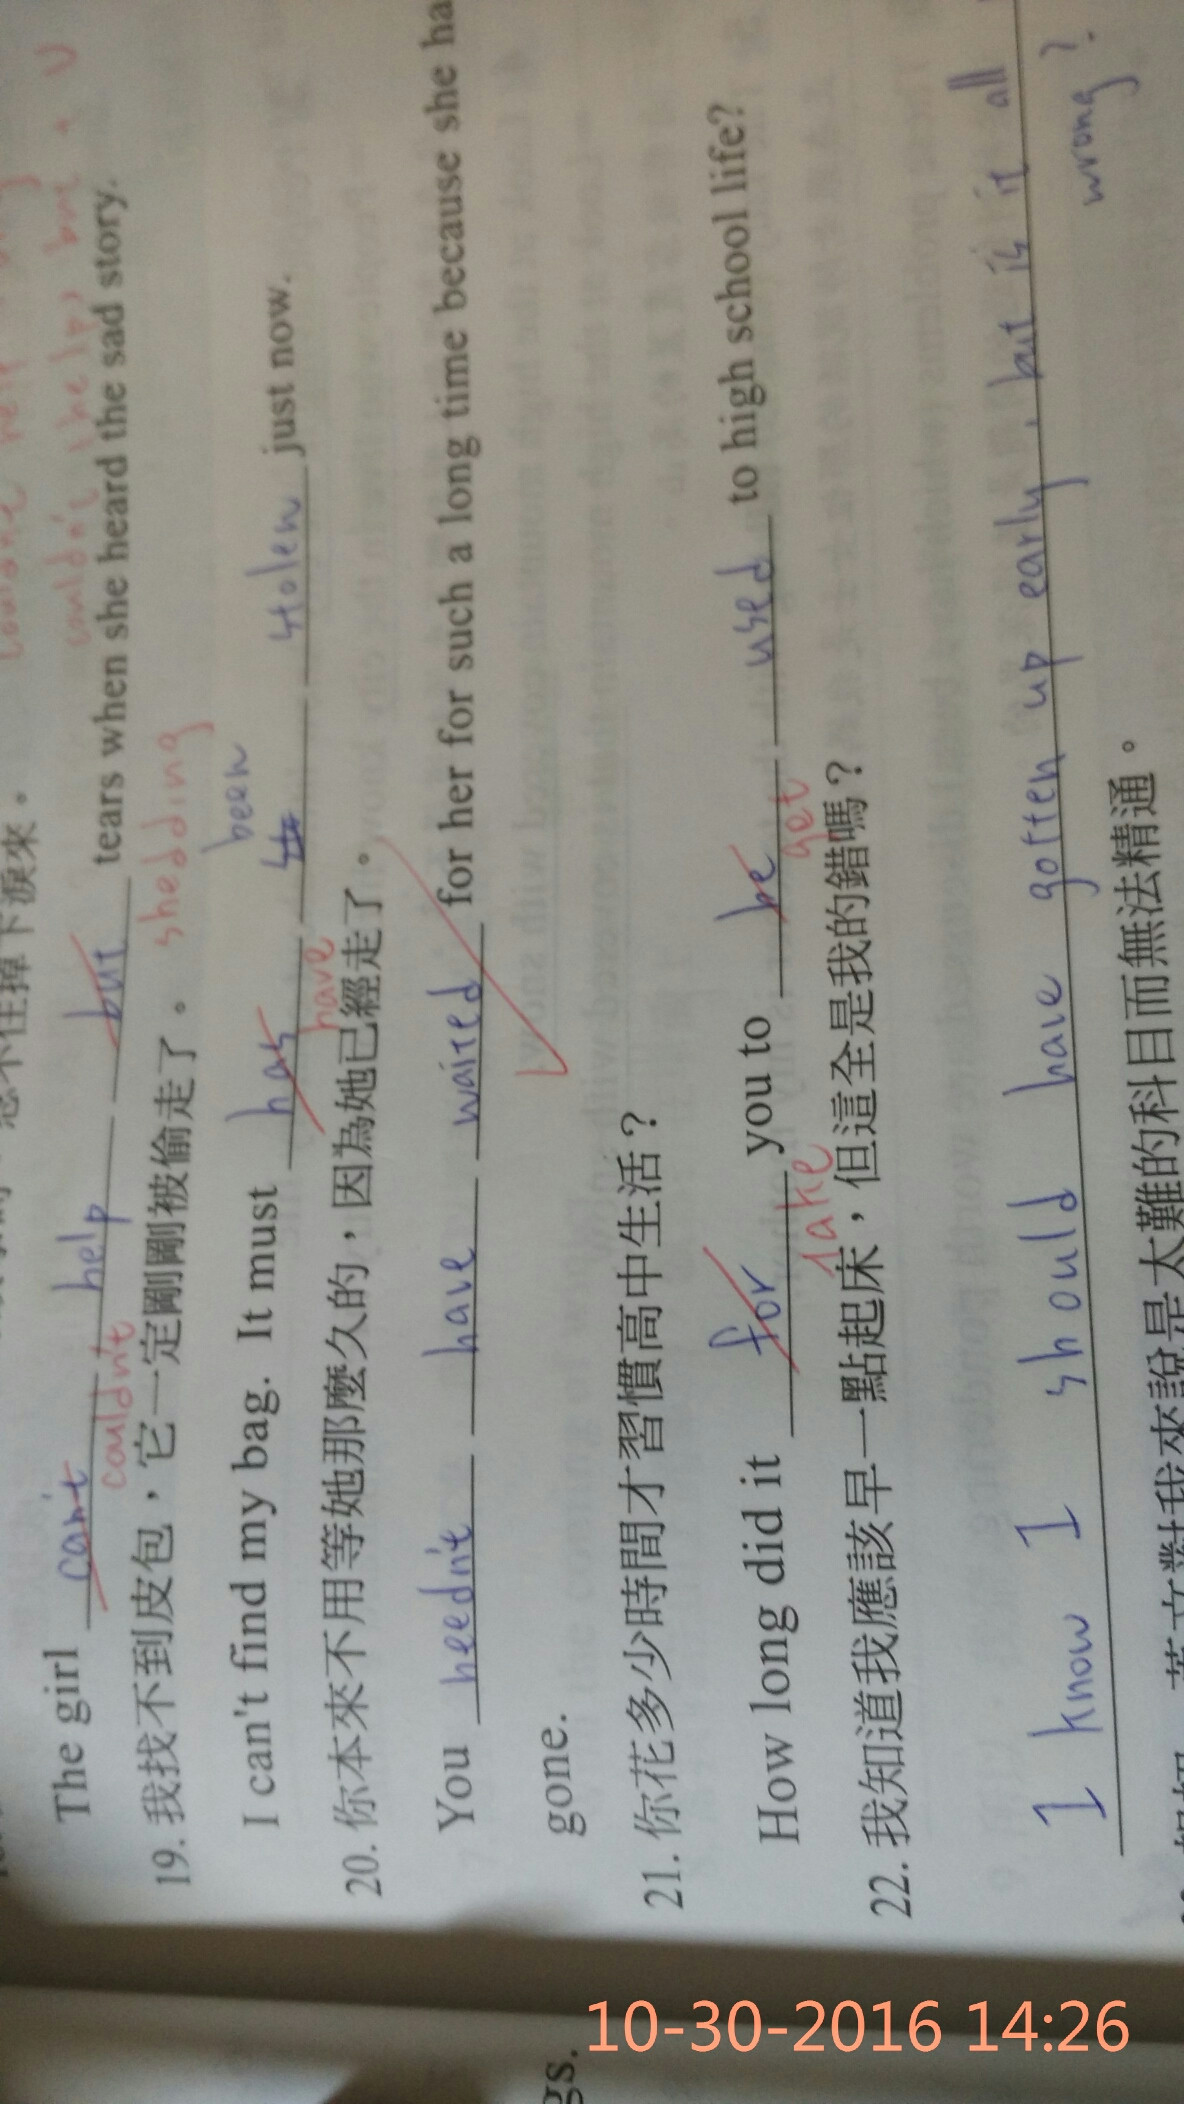 couldn't help but + V
The girl can't help but tears when she heard the sad story.
couldn't shedding
19. 我找不到皮包，它一定剛剛被偷走了。
been
I can't find my bag. It must has stolen just now.
have
20. 你本來不用等她那麼久的，因為她已經走了。
You needn't have waited for her for such a long time because she ha
gone.
21. 你花多少時間才習慣高中生活？
How long did it for you to be used to high school life?
take get
22. 我知道我應該早一點起床，但這全是我的錯嗎？
I know I should have gotten up early, but is it all
wrong?
英文對我來說是太難的科目而無法精通。
gs.
10-30-2016 14:26